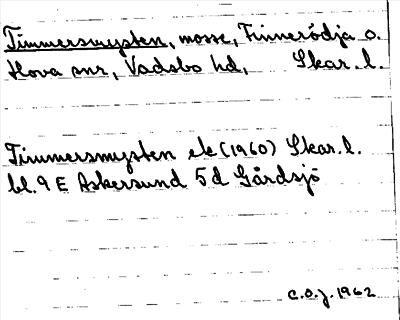 Timmersmysten, mosse, Finnerödja o.
Hova snr, Vadsbo hd, Skar. l.
Timmersmysten ek (1960) Skar. l.
bl. 9 E Askersund 5 d Gårdsjö
C.O.J. 1962